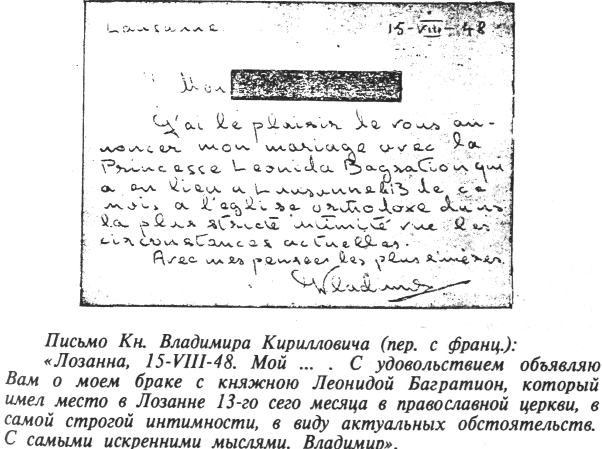 Lausanne 15-VIII-48
Mon
J'ai le plaisir de vous an-
noncer mon mariage avec la
Princesse Leonida Bagration qui
a eu lieu a Lausanne le 13 de ce
mois a l'eglise orthodoxe dans
la plus stricte intimité vue les
circonstances actuelles.
Avec mes pensées les plus sincères
Wladimir
Письмо Кн. Владимира Кирилловича (пер. с франц.):
«Лозанна, 15-VIII-48. Мой ... . С удовольствием объявляю
Вам о моем браке с княжною Леонидой Багратион, который
имел место в Лозанне 13-го сего месяца в православной церкви, в
самой строгой интимности, в виду актуальных обстоятельств.
С самыми искренними мыслями. Владимир».